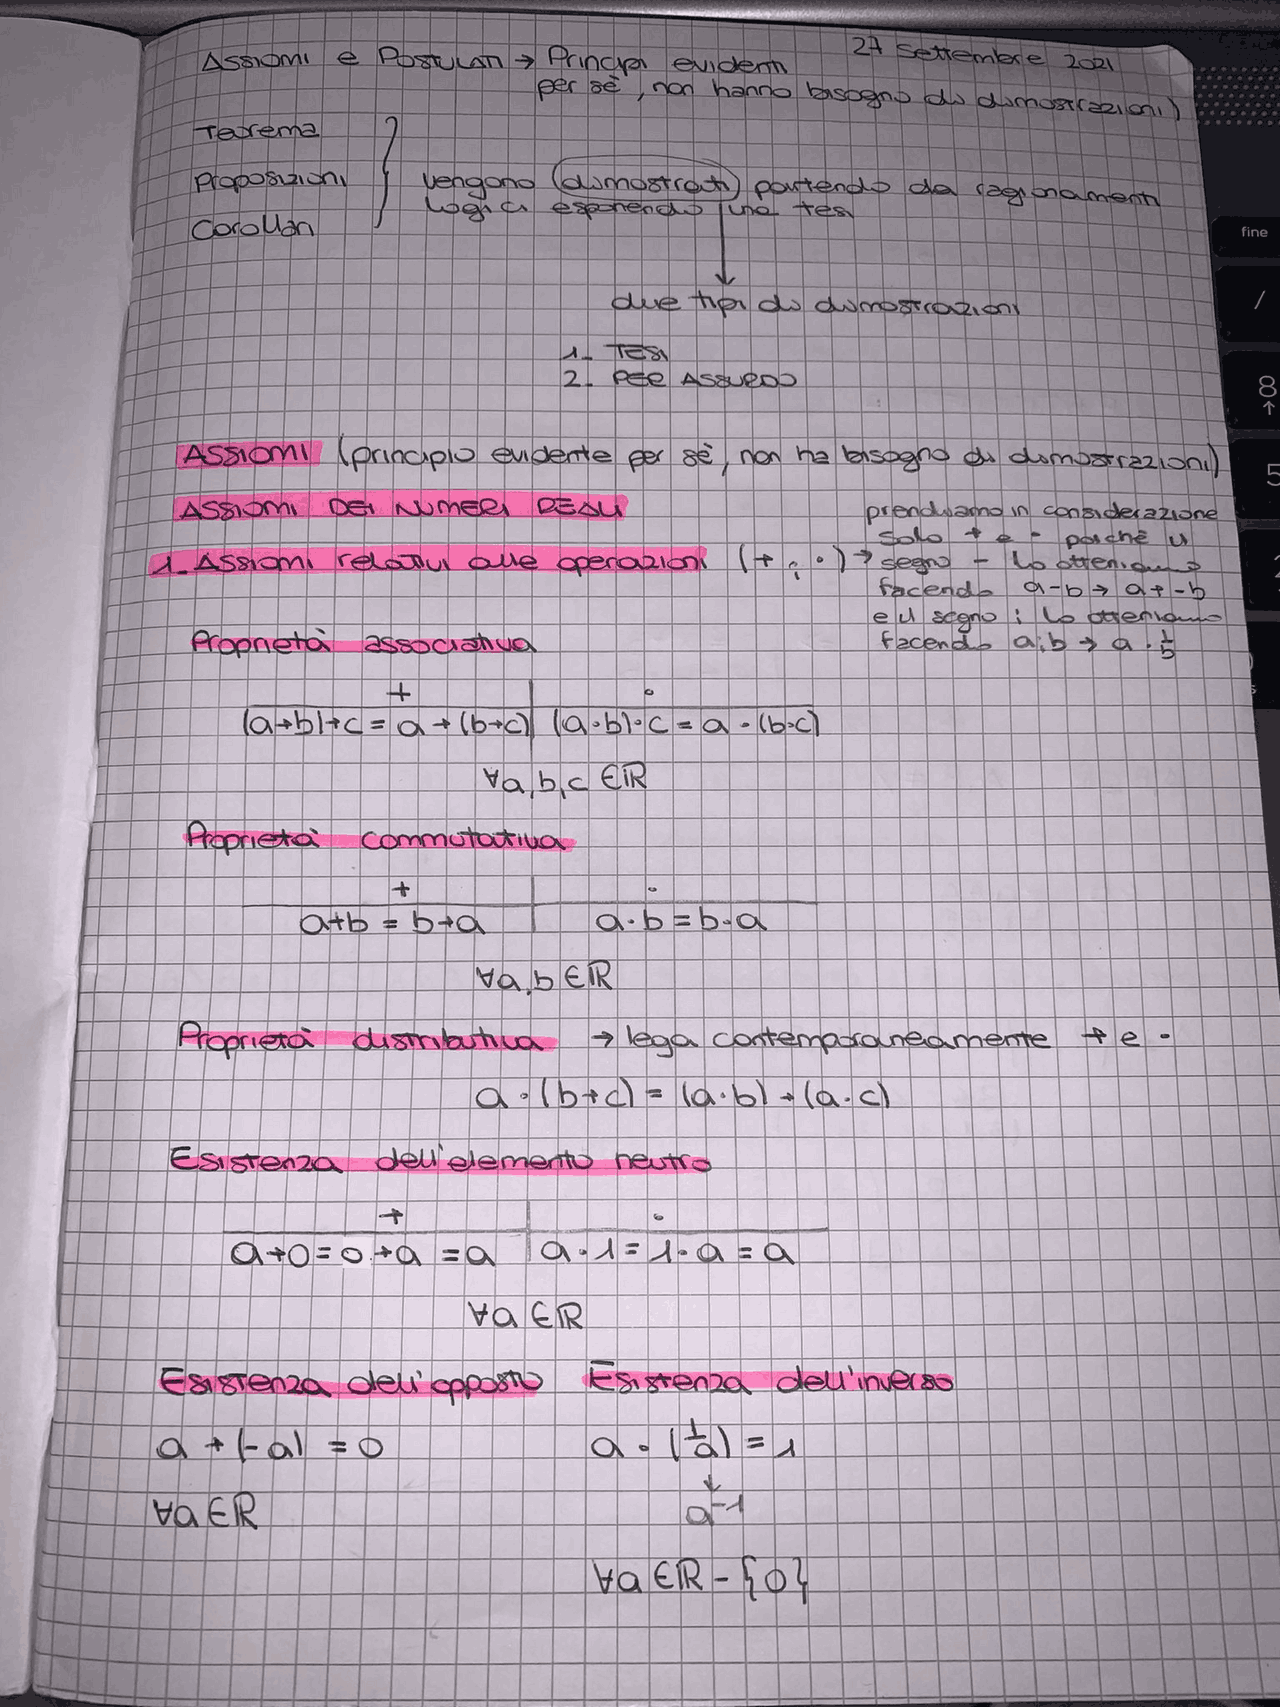 27 Settembre 2021
Assiomi e Postulati → Principi evidenti
per sè, non hanno bisogno di dimostrazioni)
Teorema
Proposizioni
Corollari
vengono (dimostrati) partendo da ragionamenti
logici esponendo una tesi
due tipi di dimostrazioni
1- TESI
2- PER ASSURDO
ASSIOMI (principio evidente per sè, non ha bisogno di dimostrazioni)
ASSIOMI DEI NUMERI REALI
1- Assiomi relativi alle operazioni (+ ; ·) →
prendiamo in considerazione
solo + e · perchè il
segno - lo otteniamo
facendo a-b → a+-b
e il segno : lo otteniamo
facendo a:b → a · 1/b
Proprietà associativa
+ ·
(a+b)+c = a+(b+c) (a·b)·c = a·(b·c)
∀a,b,c ∈ℝ
Proprietà commutativa
+ ·
a+b = b+a a·b = b·a
∀a,b ∈ℝ
Proprietà distributiva → lega contemporaneamente + e ·
a·(b+c) = (a·b)+(a·c)
Esistenza dell'elemento neutro
+ ·
a+0=0+a =a a·1=1·a=a
∀a ∈ℝ
Esistenza dell'opposto Esistenza dell'inverso
a+(-a) =0 a·(1/a) = 1
↓
∀a ∈ℝ a⁻¹
∀a ∈ℝ - {0}
fine
/
8
↑
5